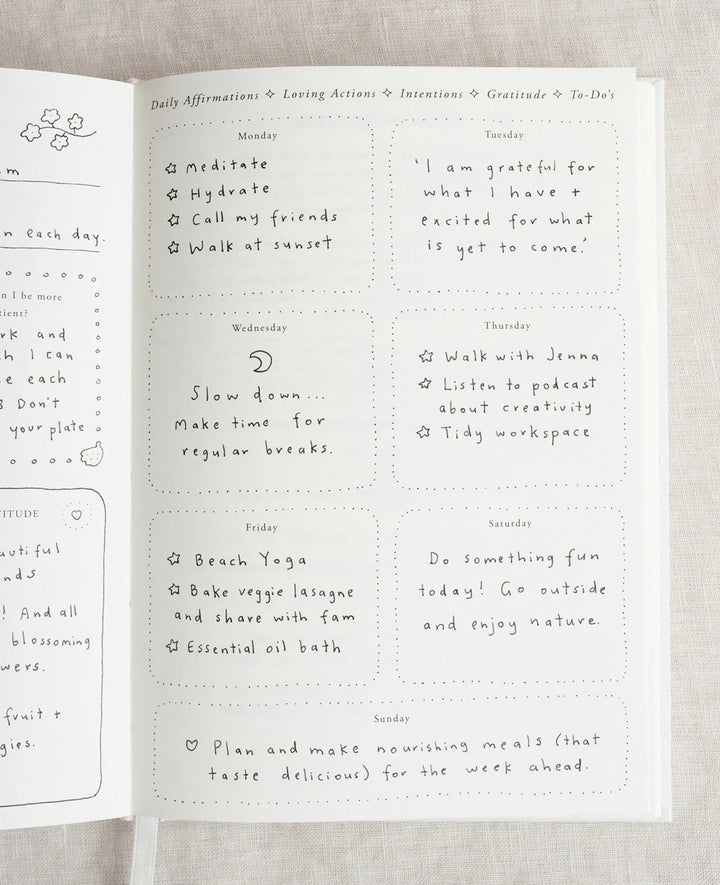 m
n each day.
n I be more
tient?
rk and
h I can
e each
Don't
your plate
TITUDE
autiful
nds
! And all
blossoming
wers.
fruit +
gies.
Daily Affirmations ✧ Loving Actions ✧ Intentions ✧ Gratitude ✧ To-Do's
Monday
Meditate
Hydrate
Call my friends
Walk at sunset
Tuesday
'I am grateful for
what I have +
excited for what
is yet to come.'
Wednesday
Slow down...
Make time for
regular breaks.
Thursday
Walk with Jenna
Listen to podcast
about creativity
Tidy workspace
Friday
Beach Yoga
Bake veggie lasagne
and share with fam
Essential oil bath
Saturday
Do something fun
today! Go outside
and enjoy nature.
Sunday
♡ Plan and make nourishing meals (that
taste delicious) for the week ahead.